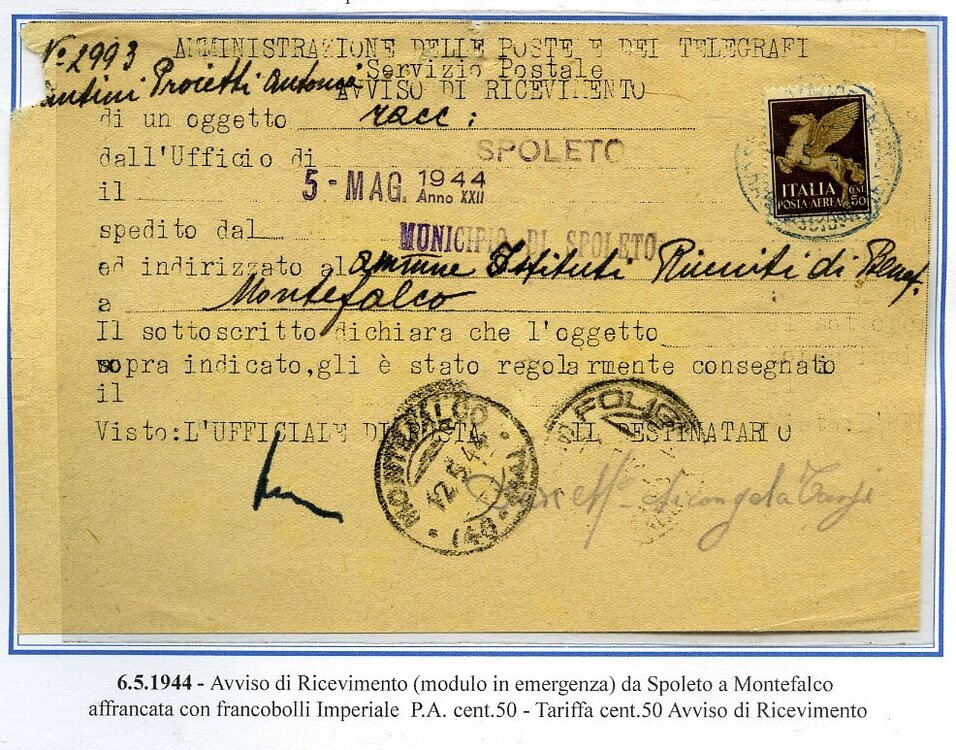 N° 2993 AMMINISTRAZIONE DELLE POSTE E DEI TELEGRAFI
Servizio Postale
Proietti AVVISO DI RICEVIMENTO
di un oggetto racc:
dall'Ufficio di SPOLETO
il 5 - MAG. 1944
Anno XXII
ITALIA
POSTA-AEREA
CENT 50
spedito dal MUNICIPIO DI SPOLETO
ed indirizzato al Istituti Riuniti di Benef.
a Montefalco
Il sottoscritto dichiara che l'oggetto
sopra indicato,gli è stato regolarmente consegnato
il
Visto:L'UFFICIALE DI POSTA IL DESTINATARIO
MONTEFALCO
12.5.44
FOLIG
6.5.1944 - Avviso di Ricevimento (modulo in emergenza) da Spoleto a Montefalco
affrancata con francobolli Imperiale P.A. cent.50 - Tariffa cent.50 Avviso di Ricevimento